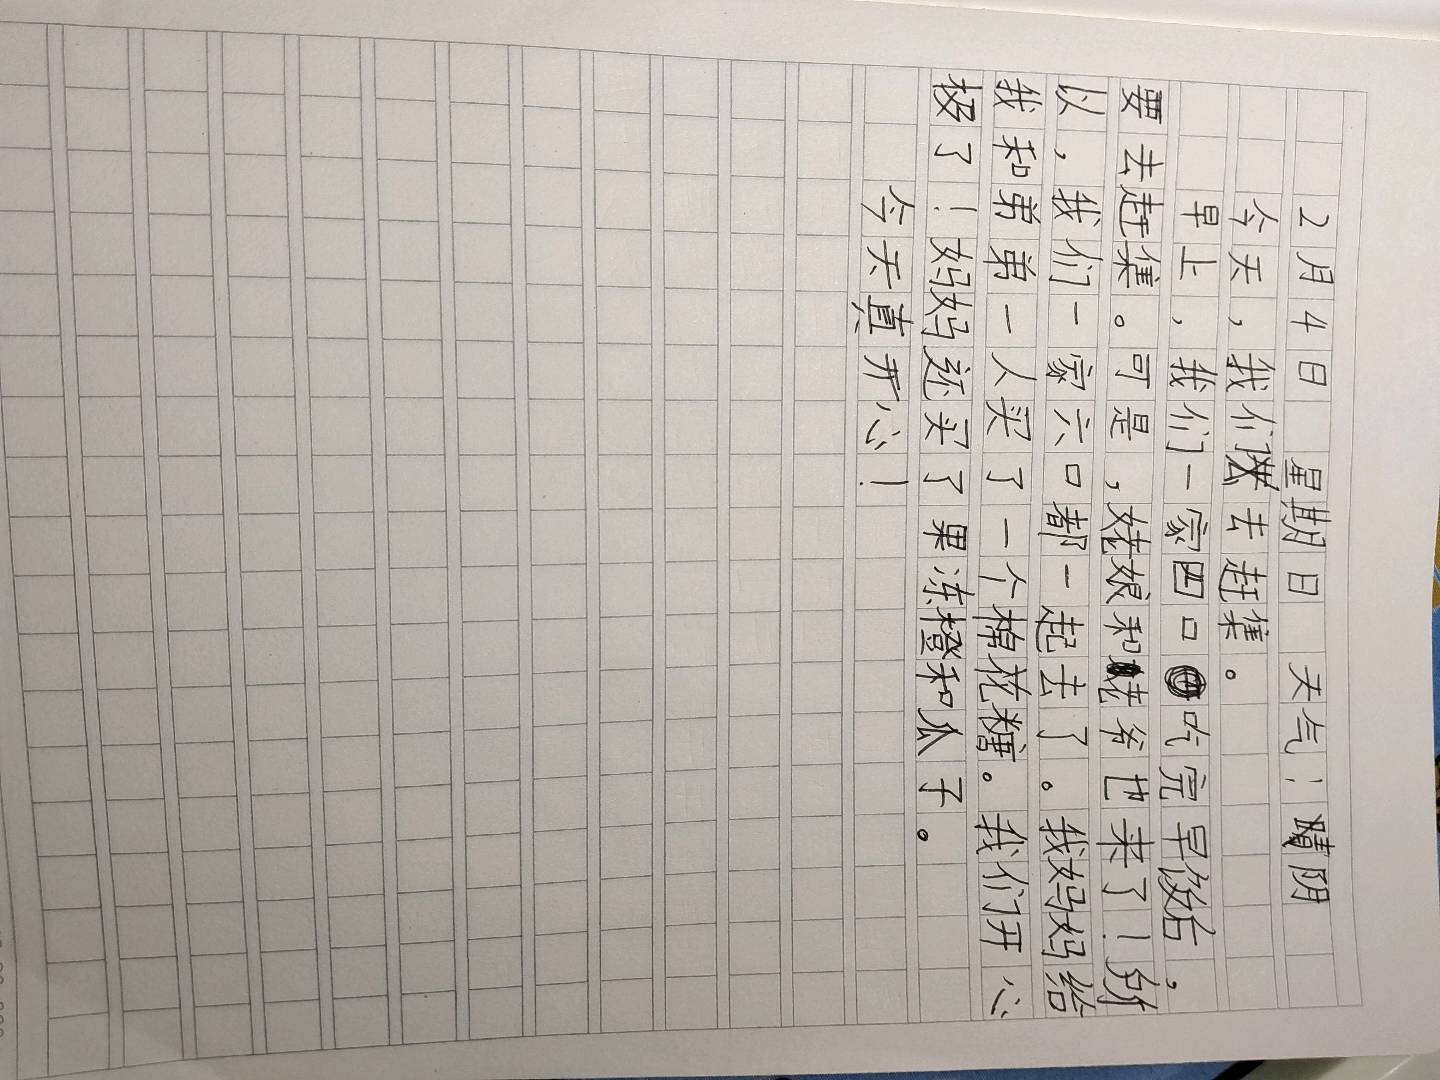 2月4日 星期日 天气：晴阴
今天，我们去赶集。
早上，我们一家四口吃完早饭后，
要去赶集。可是，姥娘和姥爷也来了！所
以，我们一家六口都一起去了。我妈妈给
我和弟弟一人买了一个棉花糖。我们开心
极了！妈妈还买了果冻橙和瓜子。
今天真开心！